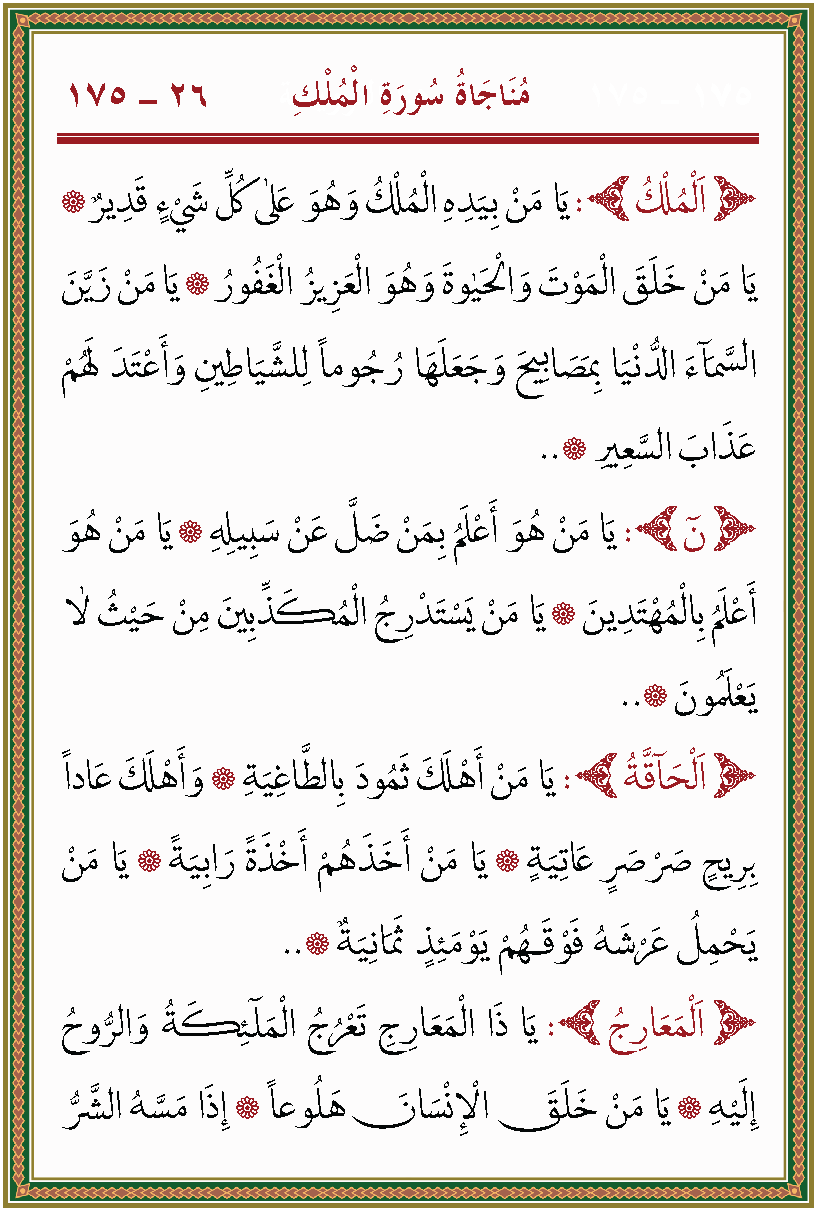 مُنَاجَاةُ سُورَةِ الْمُلْكِ ٢٦ – ١٧٥
﴿ اَلْمُلْكُ ﴾: يَا مَنْ بِيَدِهِ الْمُلْكُ وَهُوَ عَلٰى كُلِّ شَيْءٍ قَدِيرٌ ۞
يَا مَنْ خَلَقَ الْمَوْتَ وَالْحَيٰوةَ وَهُوَ الْعَزِيزُ الْغَفُورُ ۞ يَا مَنْ زَيَّنَ
السَّمَآءَ الدُّنْيَا بِمَصَابِيحَ وَجَعَلَهَا رُجُوماً لِلشَّيَاطِينِ وَأَعْتَدَ لَهُمْ
عَذَابَ السَّعِيرِ ۞..
﴿ نٓ ﴾: يَا مَنْ هُوَ أَعْلَمُ بِمَنْ ضَلَّ عَنْ سَبِيلِهِ ۞ يَا مَنْ هُوَ
أَعْلَمُ بِالْمُهْتَدِينَ ۞ يَا مَنْ يَسْتَدْرِجُ الْمُكَذِّبِينَ مِنْ حَيْثُ لَا
يَعْلَمُونَ ۞..
﴿ اَلْحَآقَّةُ ﴾: يَا مَنْ أَهْلَكَ ثَمُودَ بِالطَّاغِيَةِ ۞ وَأَهْلَكَ عَاداً
بِرِيحٍ صَرْصَرٍ عَاتِيَةٍ ۞ يَا مَنْ أَخَذَهُمْ أَخْذَةً رَابِيَةً ۞ يَا مَنْ
يَحْمِلُ عَرْشَهُ فَوْقَهُمْ يَوْمَئِذٍ ثَمَانِيَةٌ ۞..
﴿ اَلْمَعَارِجُ ﴾: يَا ذَا الْمَعَارِجِ تَعْرُجُ الْمَلَٓئِكَةُ وَالرُّوحُ
إِلَيْهِ ۞ يَا مَنْ خَلَقَ الْإِنْسَانَ هَلُوعاً ۞ إِذَا مَسَّهُ الشَّرُّ